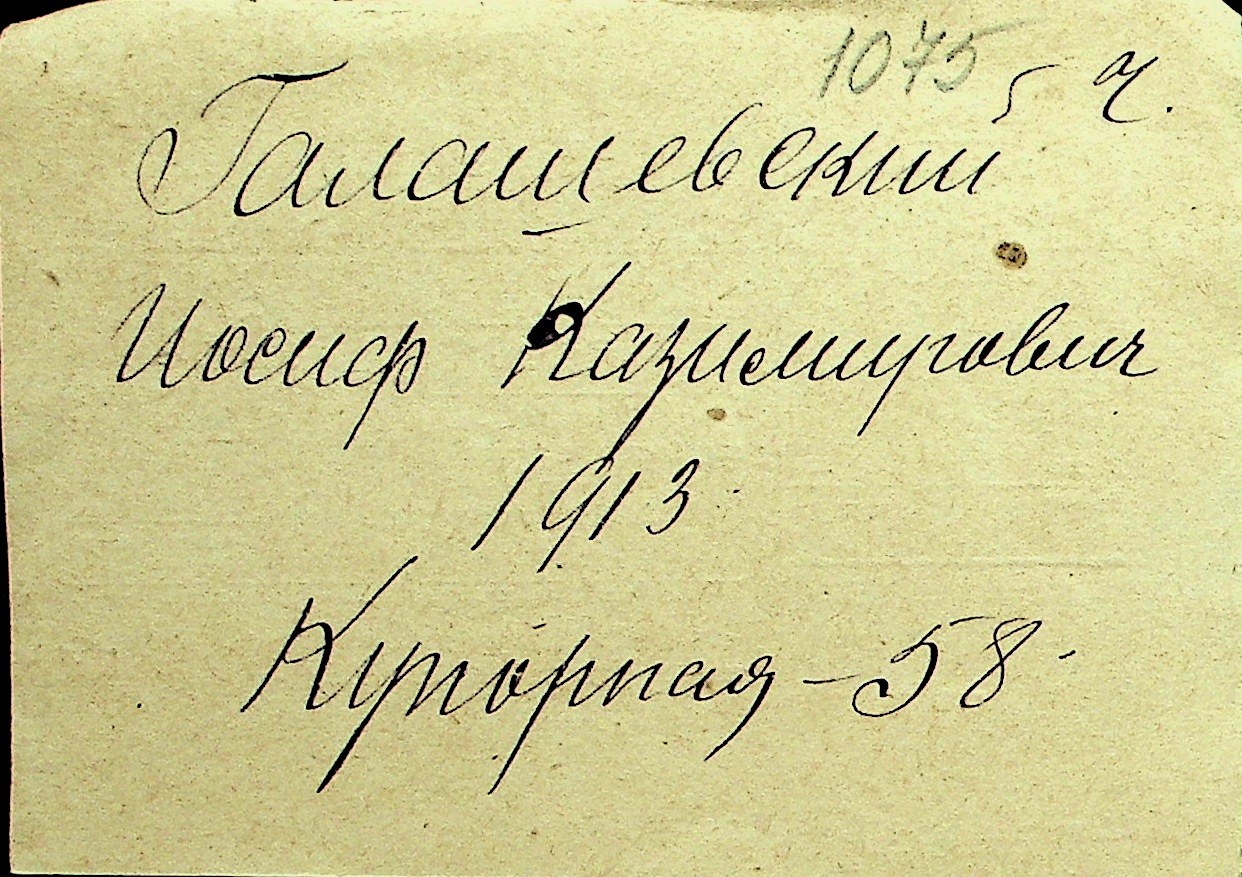 1075 ч.
Галашевский
Иосиф Казимирович
1913
Купорная - 58